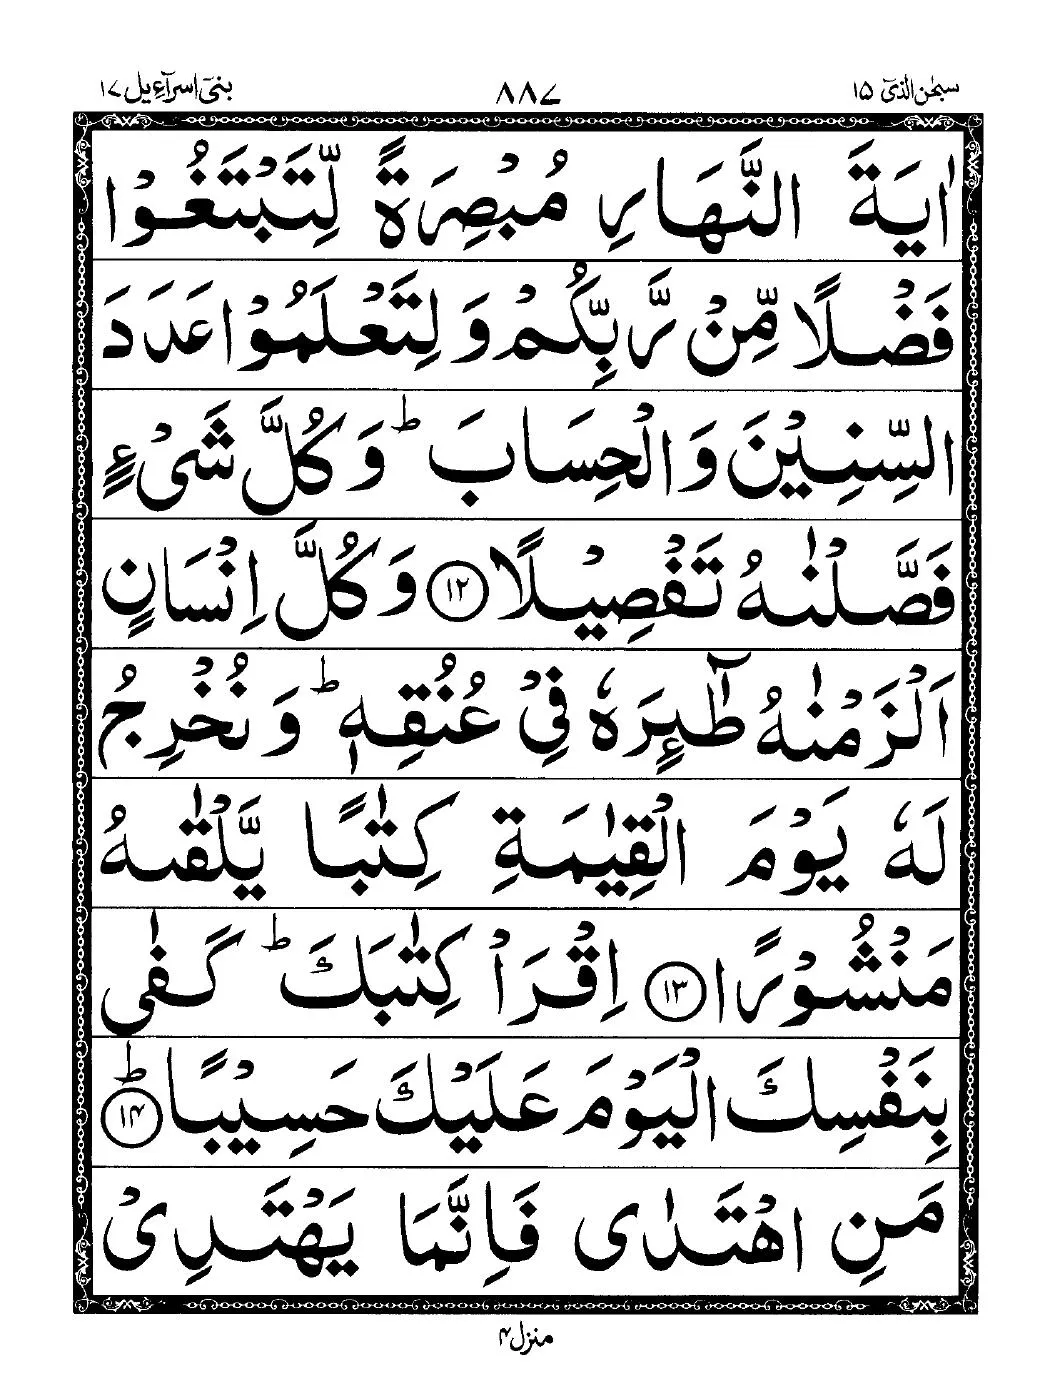 سبحٰن الذیٓ ۱۵
۸۸۷
بنیٓ اسرآءیل ۱۷
اٰيَةَ النَّهَارِ مُبْصِرَةً لِّتَبْتَغُوْا
فَضْلًا مِّنْ رَّبِّكُمْ وَ لِتَعْلَمُوْا عَدَدَ
السِّنِيْنَ وَ الْحِسَابَ ؕ وَ كُلَّ شَیْءٍ
فَصَّلْنٰهُ تَفْصِيْلًا ۱۲ وَ كُلَّ اِنْسَانٍ
اَلْزَمْنٰهُ طٰٓئِرَهٗ فِیْ عُنُقِهٖ ؕ وَ نُخْرِجُ
لَهٗ يَوْمَ الْقِيٰمَةِ كِتٰبًا يَّلْقٰىهُ
مَنْشُوْرًا ۱۳ اِقْرَاْ كِتٰبَكَ ؕ كَفٰی
بِنَفْسِكَ الْيَوْمَ عَلَيْكَ حَسِيْبًا ؕ ۱۴
مَنِ اهْتَدٰی فَاِنَّمَا يَهْتَدِیْ
منزل ۴